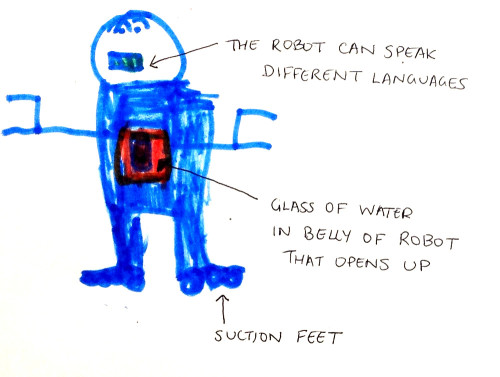 THE ROBOT CAN SPEAK
DIFFERENT LANGUAGES
GLASS OF WATER
IN BELLY OF ROBOT
THAT OPENS UP
SUCTION FEET